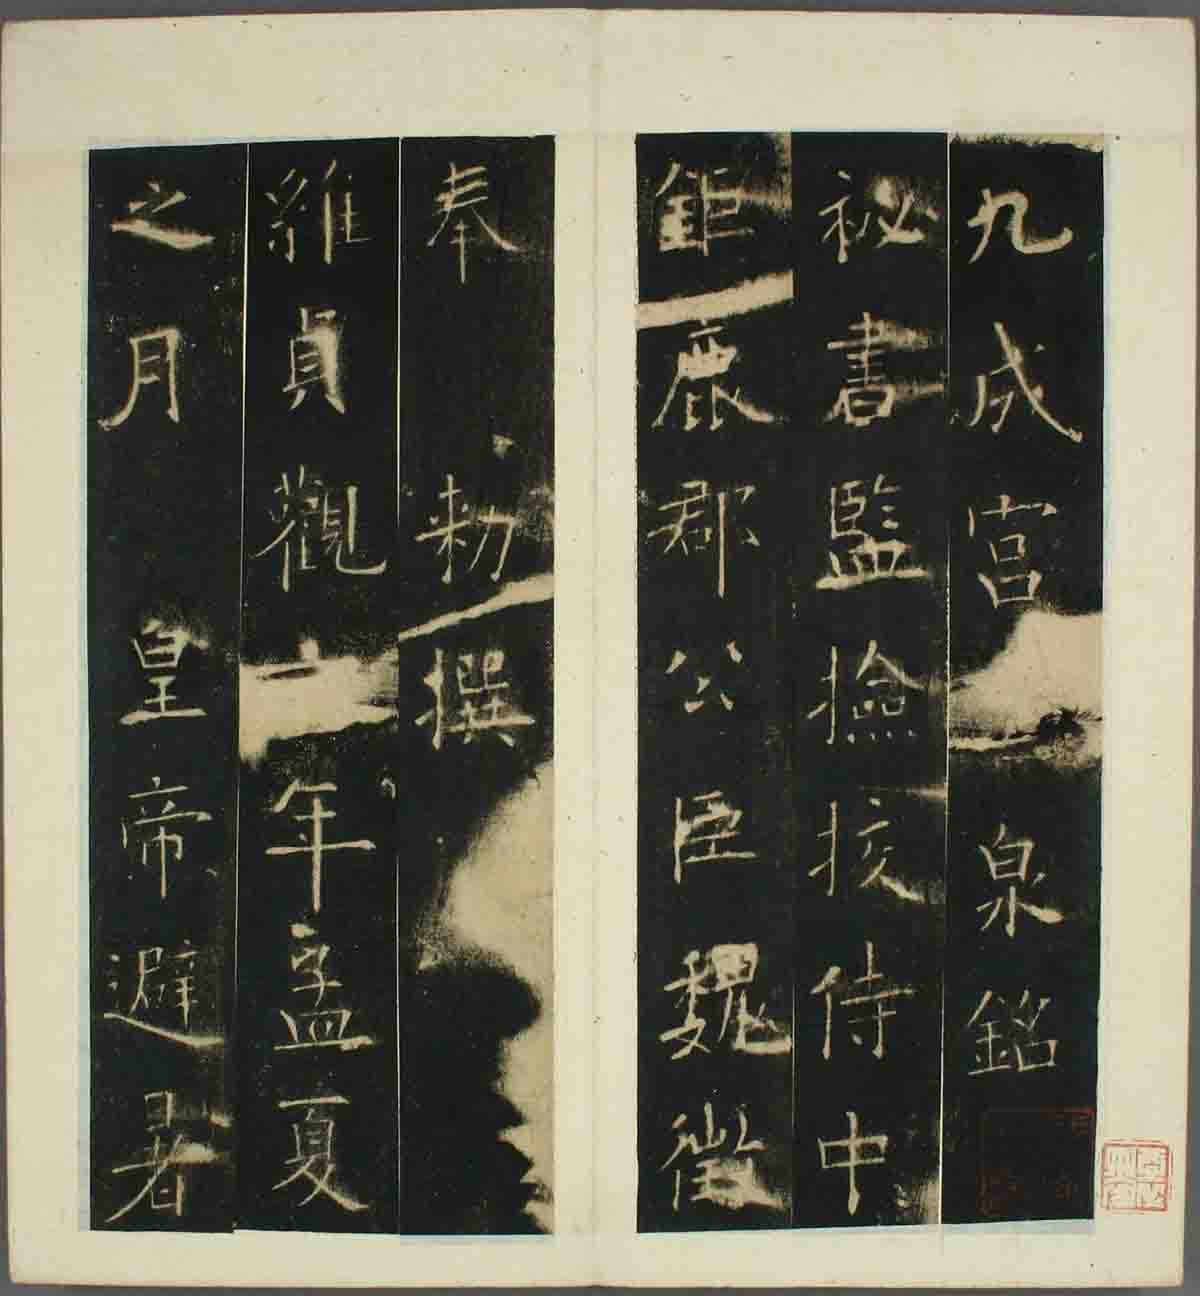 九成宮泉銘
祕書監撿挍侍中
鉅鹿郡公臣魏徵
奉勑撰
維貞觀六年孟夏
之月皇帝避暑